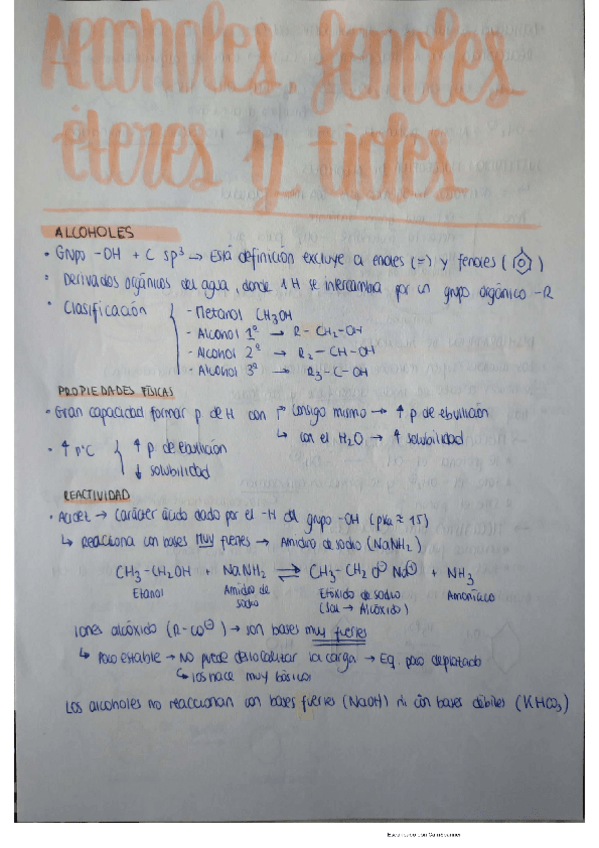 Alcoholes, fenoles
éteres y tioles
ALCOHOLES
• Grupo -OH + C sp³ → Está definición excluye a enoles (=) y fenoles ( )
• Derivados orgánicos del agua, donde 1H se intercambia por un grupo orgánico -R
• Clasificación
- Metanol CH₃OH
- Alcohol 1º → R-CH₂-OH
- Alcohol 2º → R₂-CH-OH
- Alcohol 3º → R₃-C-OH
PROPIEDADES FÍSICAS
• Gran capacidad formar p de H con consigo mismo → ↑ p de ebullición
↳ con el H₂O → ↑ solubilidad
• ↑ nºC
↑ p de ebullición
↓ solubilidad
REACTIVIDAD
• Acidez → Carácter ácido dado por el -H del grupo -OH (pKa ≈ 15)
↳ Reacciona con bases muy fuertes → Amiduro de sodio (NaNH₂)
CH₃-CH₂OH + NaNH₂ ⇌ CH₃-CH₂O⊖ Na⊕ + NH₃
Etanol Amiduro de sodio Etóxido de sodio (Sal → Alcóxido) Amoníaco
Iones alcóxido (R-CO⊖) → son bases muy fuertes
↳ Poco estable → No puede deslocalizar la carga → Eq. poco desplazado
↳ los hace muy básicos
Los alcoholes no reaccionan con bases fuertes (NaOH) ni con bases débiles (KHCO₃)
Escaneado con CamScanner